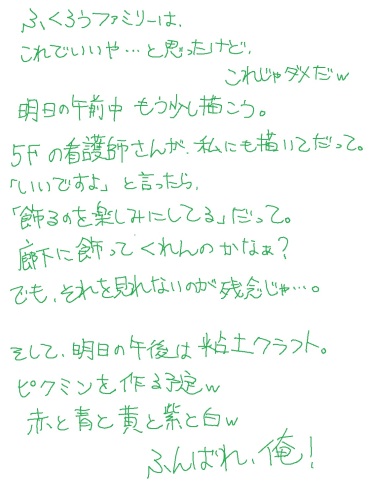 ふくろうファミリーは、
これでいいや…と思ったけど、
これじゃダメだw
明日の午前中 もう少し描こう。
5Fの看護師さんが、私にも描いてだって。
「いいですよ」と言ったら、
「飾るのを楽しみにしてる」だって。
廊下に飾ってくれんのかなぁ?
でも、それを見れないのが残念じゃ…。
そして、明日の午後は粘土クラフト。
ピクミンを作る予定w
赤と青と黄と紫と白w
ふんばれ、俺!